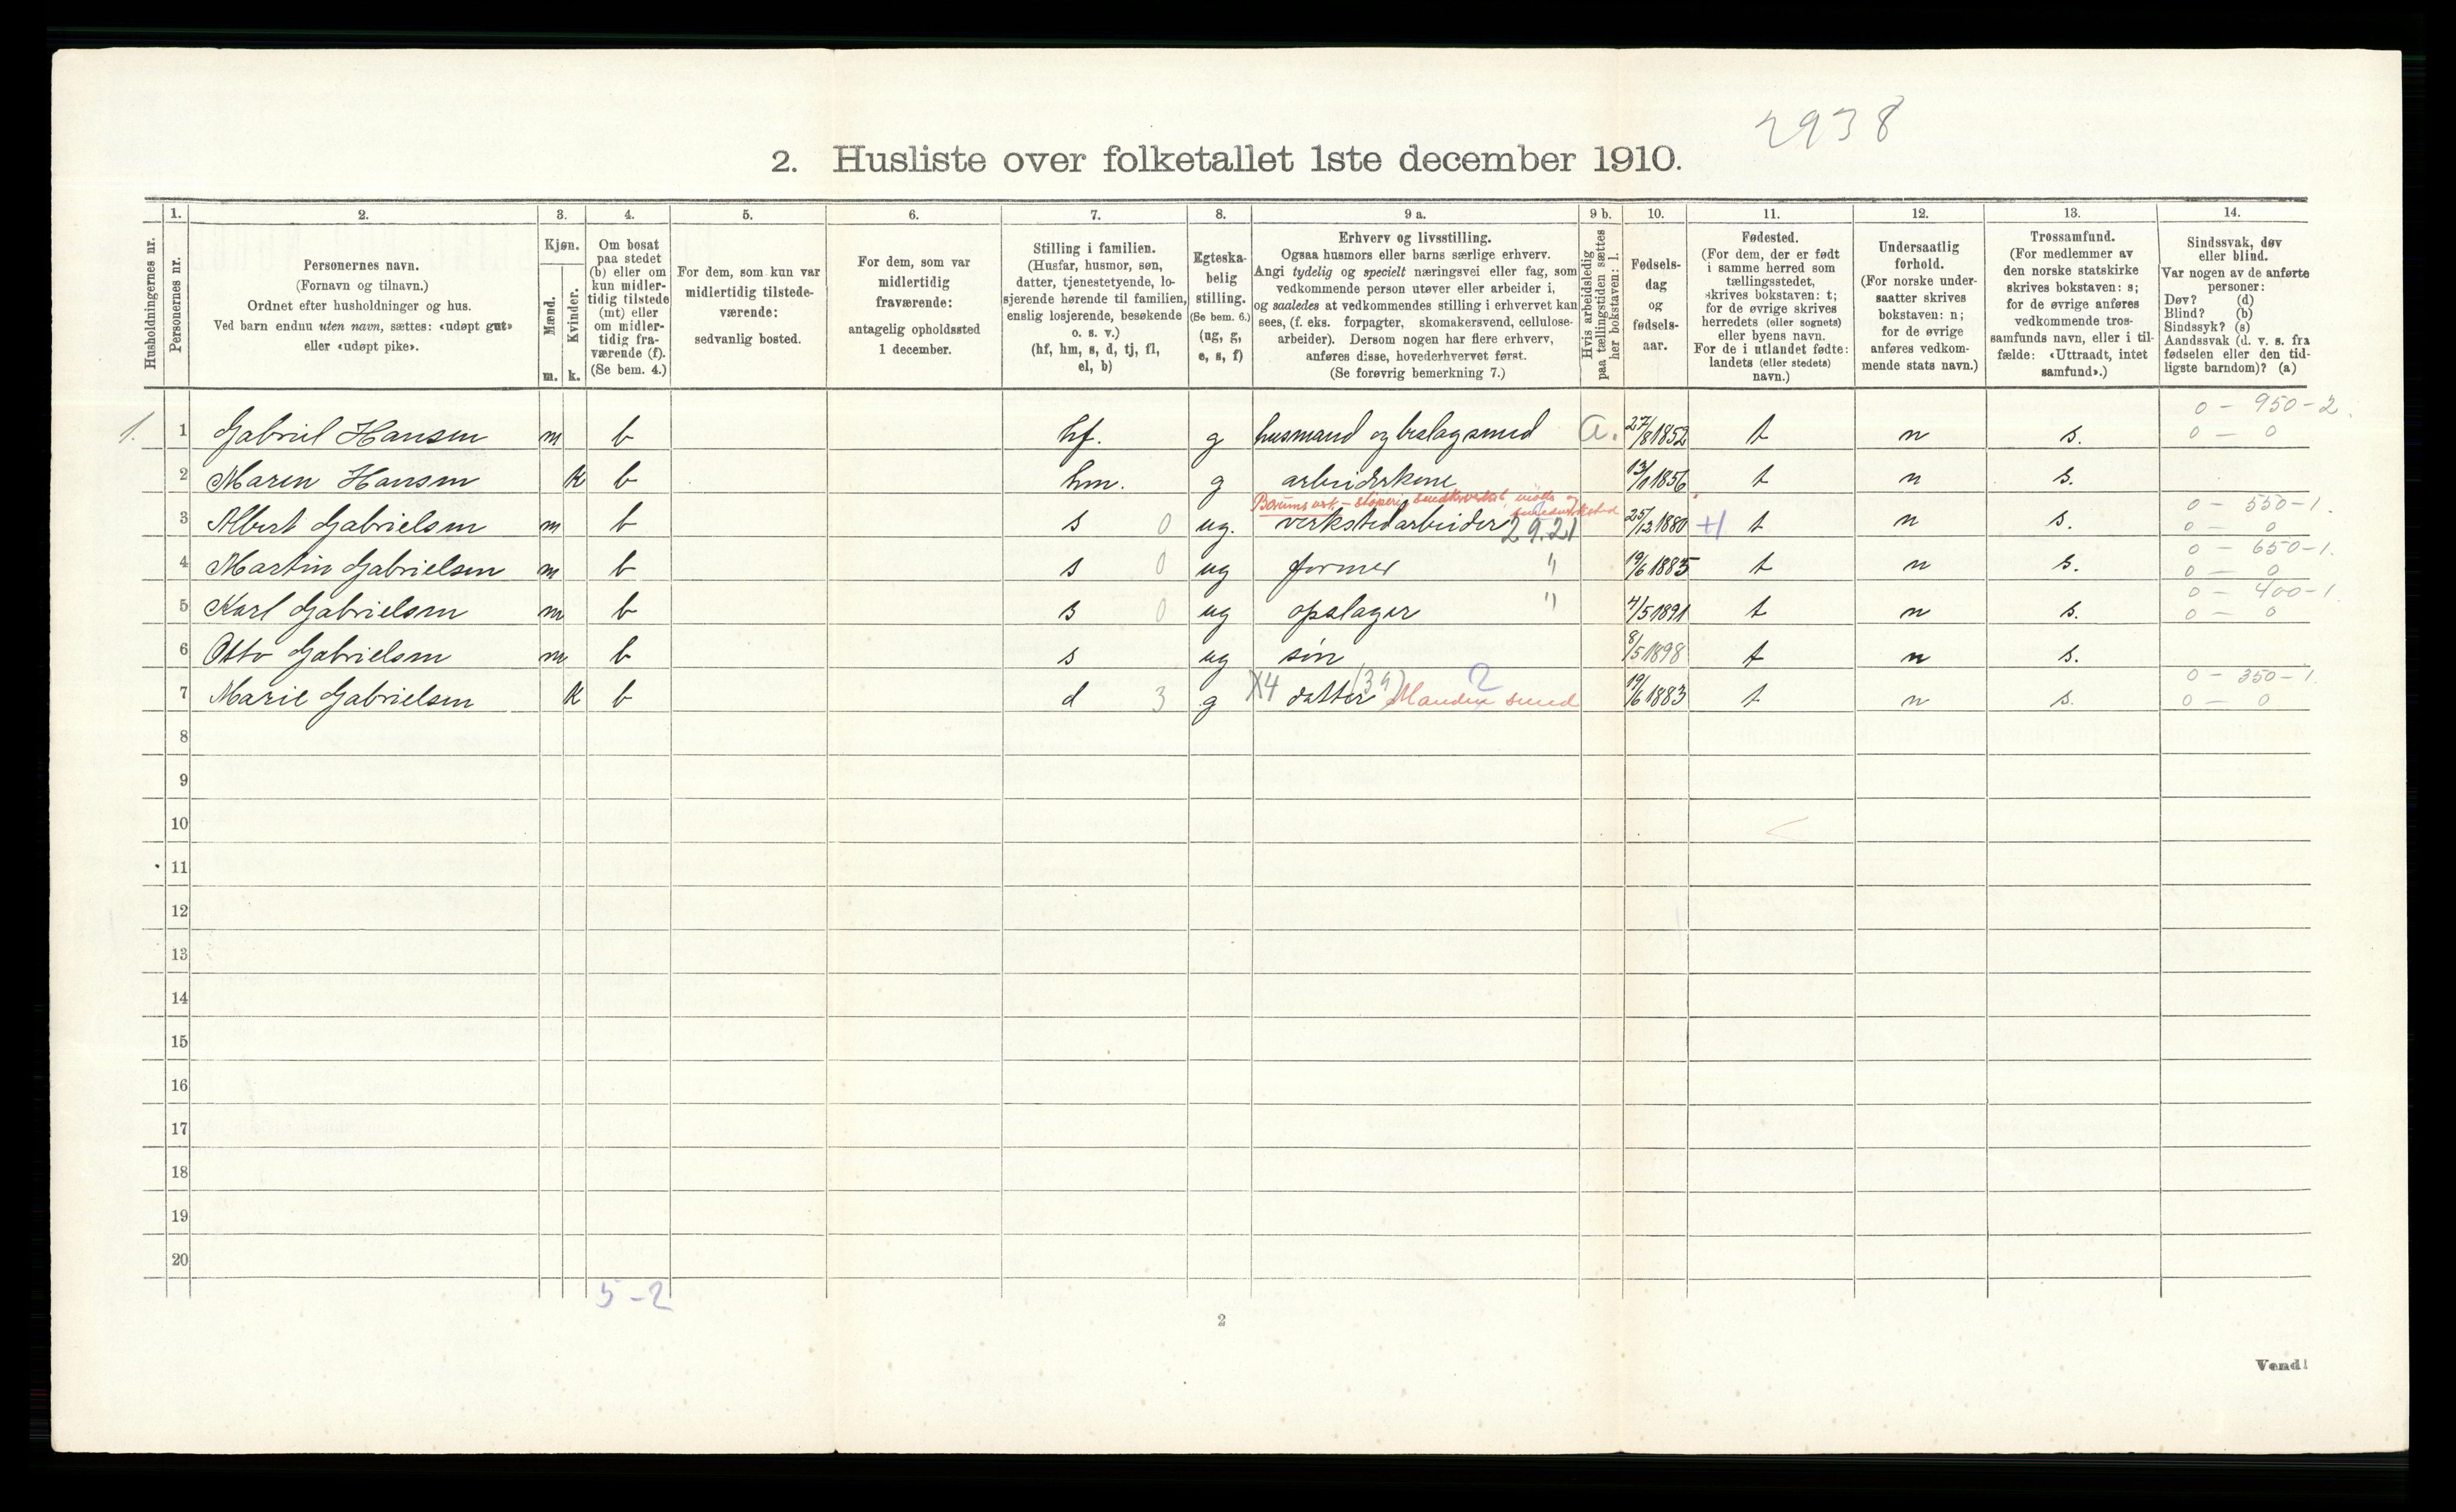 2938
2. Husliste over folketallet 1ste december 1910.
Husholdningernes nr.
1.
Personernes nr.
2.
Personernes navn.
(Fornavn og tilnavn.)
Ordnet efter husholdninger og hus.
Ved barn endnu uten navn, sættes: «udøpt gut»
eller «udøpt pike».
3.
Kjøn.
Mænd.
Kvinder.
m. k.
4.
Om bosat
paa stedet
(b) eller om
kun midler-
tidig tilstede
(mt) eller
om midler-
tidig fra-
værende (f).
(Se bem. 4.)
5.
For dem, som kun var
midlertidig tilstede-
værende:
sedvanlig bosted.
6.
For dem, som var
midlertidig
fraværende:
antagelig opholdssted
1 december.
7.
Stilling i familien.
(Husfar, husmor, søn,
datter, tjenestetyende, lo-
sjerende hørende til familien,
enslig losjerende, besøkende
o. s. v.)
(hf, hm, s, d, tj, fl,
el, b)
8.
Egteska-
belig
stilling.
(Se bem. 6.)
(ug, g,
e, s, f)
9 a.
Erhverv og livsstilling.
Ogsaa husmors eller barns særlige erhverv.
Angi tydelig og specielt næringsvei eller fag, som
vedkommende person utøver eller arbeider i,
og saaledes at vedkommendes stilling i erhvervet kan
sees, (f. eks. forpagter, skomakersvend, cellulose-
arbeider). Dersom nogen har flere erhverv,
anføres disse, hovederhvervet først.
(Se forøvrig bemerkning 7.)
9 b.
Hvis arbeidsledig
paa tællingstiden sættes
her bokstaven: l.
10.
Fødsels-
dag
og
fødsels-
aar.
11.
Fødested.
(For dem, der er født
i samme herred som
tællingsstedet,
skrives bokstaven: t;
for de øvrige skrives
herredets (eller sognets)
eller byens navn.
For de i utlandet fødte:
landets (eller stedets)
navn.)
12.
Undersaatlig
forhold.
(For norske under-
saatter skrives
bokstaven: n;
for de øvrige
anføres vedkom-
mende stats navn.)
13.
Trossamfund.
(For medlemmer av
den norske statskirke
skrives bokstaven: s;
for de øvrige anføres
vedkommende tros-
samfunds navn, eller i til-
fælde: «Uttraadt, intet
samfund».)
14.
Sindssvak, døv
eller blind.
Var nogen av de anførte
personer:
Døv? (d)
Blind? (b)
Sindssyk? (s)
Aandssvak (d. v. s. fra
fødselen eller den tid-
ligste barndom)? (a)
0 – 950 – 2.
1. 1 Gabriel Hansen m b hf. g husmand og beslagsmed a. 27/8 1852 t n s. 0 – 0
2 Maren Hansen k b hm. g arbeiderskone 13/1 1856 t n s.
Bærums verk – støperi, 0 – 550 – 1.
3 Albert Gabrielsen m b s 0 ug. verkstedarbeider 29.21 25/12 1880 +1 t n s. 0 – 0
0 – 650 – 1.
4 Martin Gabrielsen m b s 0 ug former " 19/6 1885 t n s. 0 – 0
0 – 400 – 1.
5 Karl Gabrielsen m b s 0 ug opslager " 4/5 1891 t n s. 0 – 0
6 Otto Gabrielsen m b s ug søn 8/5 1898 t n s.
2 0 – 350 – 1.
7 Marie Gabrielsen k b d 3 g X4 datter Manden smed 19/6 1883 t n s. 0 – 0
8
9
10
11
12
13
14
15
16
17
18
19
20
5 – 2
2
Vend!